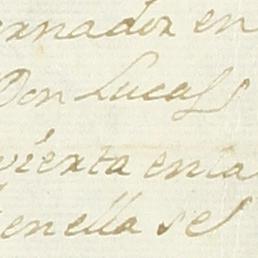 ernador en
Don Lucas
vierta en la
en ella se